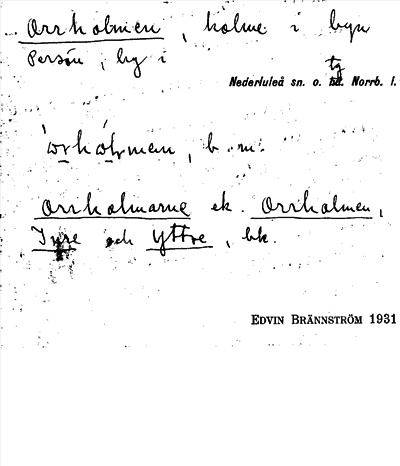 Orrholmen, holme i byn
Persön, by i
Nederluleå sn. o. tg Norrb. l.
b. m.
Orrholmarne ek. Orrholmen,
Inre och Yttre, bk.
EDVIN BRÄNNSTRÖM 1931